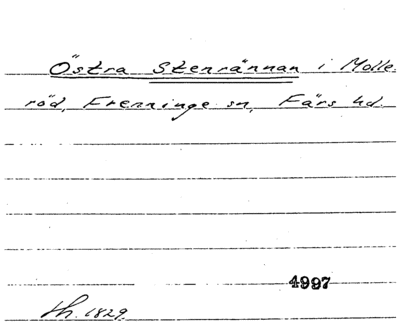 Östra Stenrännan i Molle-
röd, Frenninge sn, Färs hd.
4997
th. 1829